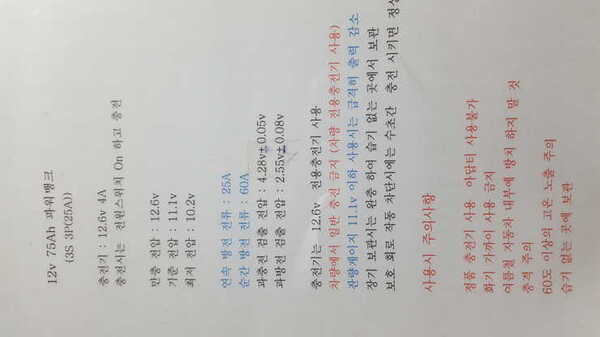 12v 75Ah 파워뱅크
((3S 3P(25A))
충전기 : 12.6v 4A
충전시는 전원스위치 On 하고 충전
만충 전압 : 12.6v
기준 전압 : 11.1v
최저 전압 : 10.2v
연속 방전 전류 : 25A
순간 방전 전류 : 60A
과충전 검출 전압 : 4.28v± 0.05v
과방전 검출 전압 : 2.55v± 0.08v
충전기는 12.6v 전용충전기 사용
차량에서 일반 충전 금지 (차량 전용충전기 사용)
잔량게이지 11.1v 이하 사용시는 급격히 출력 감소
장기 보관시는 완충 하여 습기 없는 곳에서 보관
보호 회로 작동 차단시에는 수초간 충전 시키면 정상
사용시 주의사항
정품 충전기 사용 아답터 사용불가
화기 가까이 사용 금지
여름철 자동차 내부에 방치 하지 말 것
충격 주의
60도 이상의 고온 노출 주의
습기 없는 곳에 보관